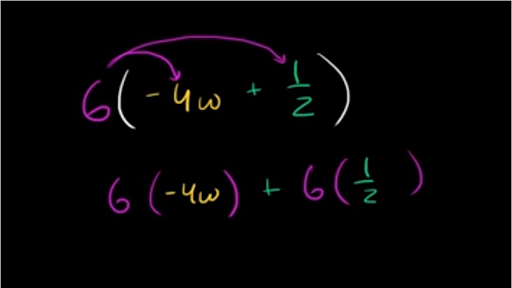 6(-4w + 1/2)
6(-4w) + 6(1/2)